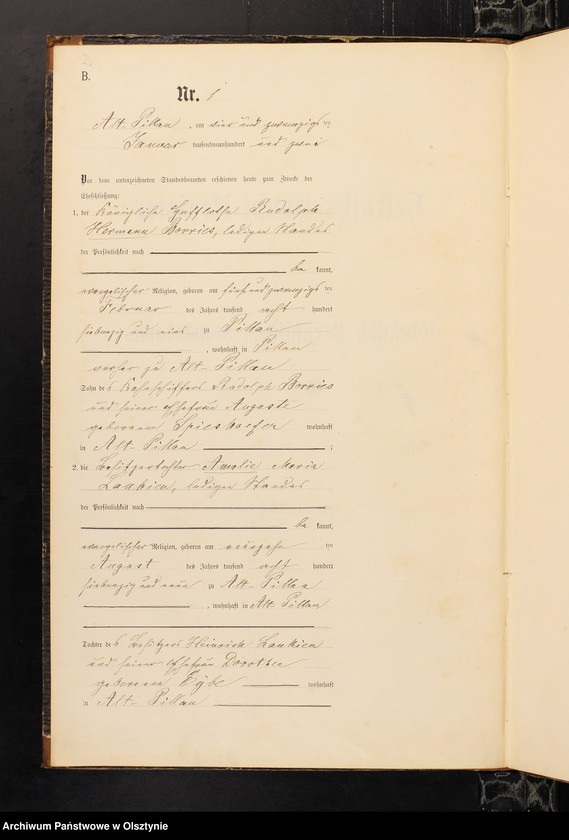 B.
Nr. 1
Alt-Pillau, am vier und zwanzigsten
Januar tausendneunhundert und zwei
Vor dem unterzeichneten Standesbeamten erschienen heute zum Zwecke der
Eheschließung:
1. der Königliche Rudolph
Hermann Borries, ledigen Standes
der Persönlichkeit nach
be kannt,
evangelischer Religion, geboren am fünfundzwanzigsten
Februar des Jahres tausend acht hundert
siebenzig und eins zu Pillau
, wohnhaft in Pillau
vorher zu Alt-Pillau
Sohn des Kahnschiffers Rudolph Borries
und seiner Ehefrau Auguste
geborenen wohnhaft
in Alt-Pillau ;
2. die Besitzertochter Amalie Maria
Laukien, ledigen Standes
der Persönlichkeit nach
be kannt,
evangelischer Religion, geboren am ten
August des Jahres tausend acht hundert
siebenzig und neun zu Alt-Pillau
, wohnhaft in Alt-Pillau
Tochter des Besitzers Heinrich Laukien
und seiner Ehefrau Dorothea
geborenen wohnhaft
in Alt-Pillau
Archiwum Państwowe w Olsztynie